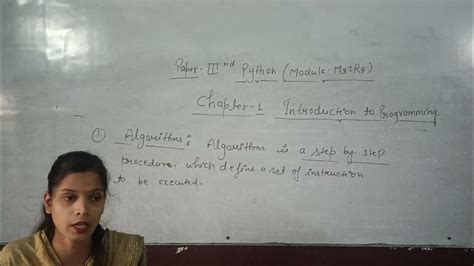 Paper-IIIrd Python (Module-M3:R5)
Chapter-1 Introduction to Programming
① Algorithms: Algorithms is a step by step
procedure. which define a set of instruction
to be executed.